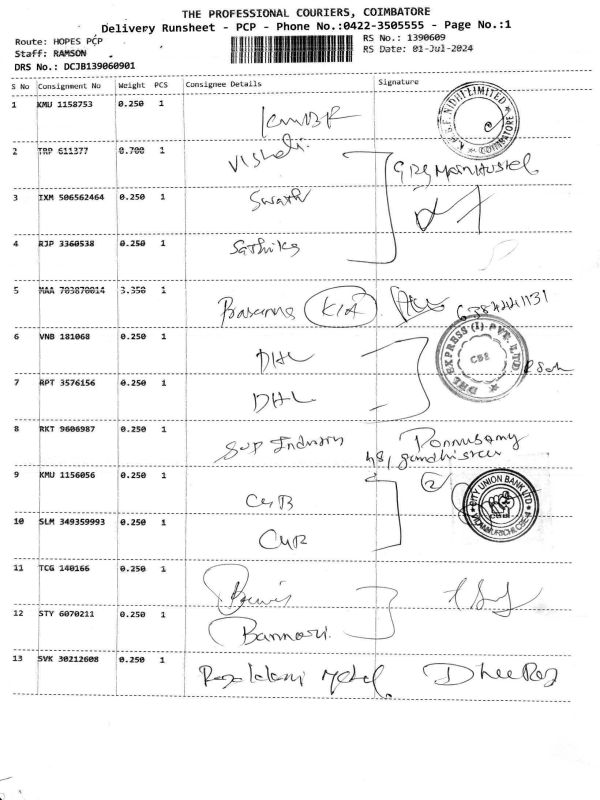 THE PROFESSIONAL COURIERS, COIMBATORE
Delivery Runsheet - PCP - Phone No.:0422-3505555 - Page No.:1
Route: HOPES PCP
RS No.: 1390609
Staff: RAMSON
RS Date: 01-Jul-2024
DRS No.: DCJB139060901
S No Consignment No Weight PCS Consignee Details Signature
1 KMU 1158753 0.250 1
2 TRP 611377 0.700 1
3 IXM 506562464 0.250 1 Swath
4 RJP 3360538 0.250 1 Sathika
5 MAA 703870014 3.350 1 Prasanna KIA
6 VNB 181068 0.250 1 DHL
DHL EXPRESS (I) PVT. LTD
CBE
7 RPT 3576156 0.250 1 DHL
8 RKT 9606987 0.250 1 Sup Industry Ponnusamy
48, gandhi
9 KMU 1156056 0.250 1 CUB 2
CITY UNION BANK LTD
10 SLM 349359993 0.250 1 CUB
11 TCG 140166 0.250 1
12 STY 6070211 0.250 1 Bannari
13 SVK 30212608 0.250 1 Metal Dheeraj